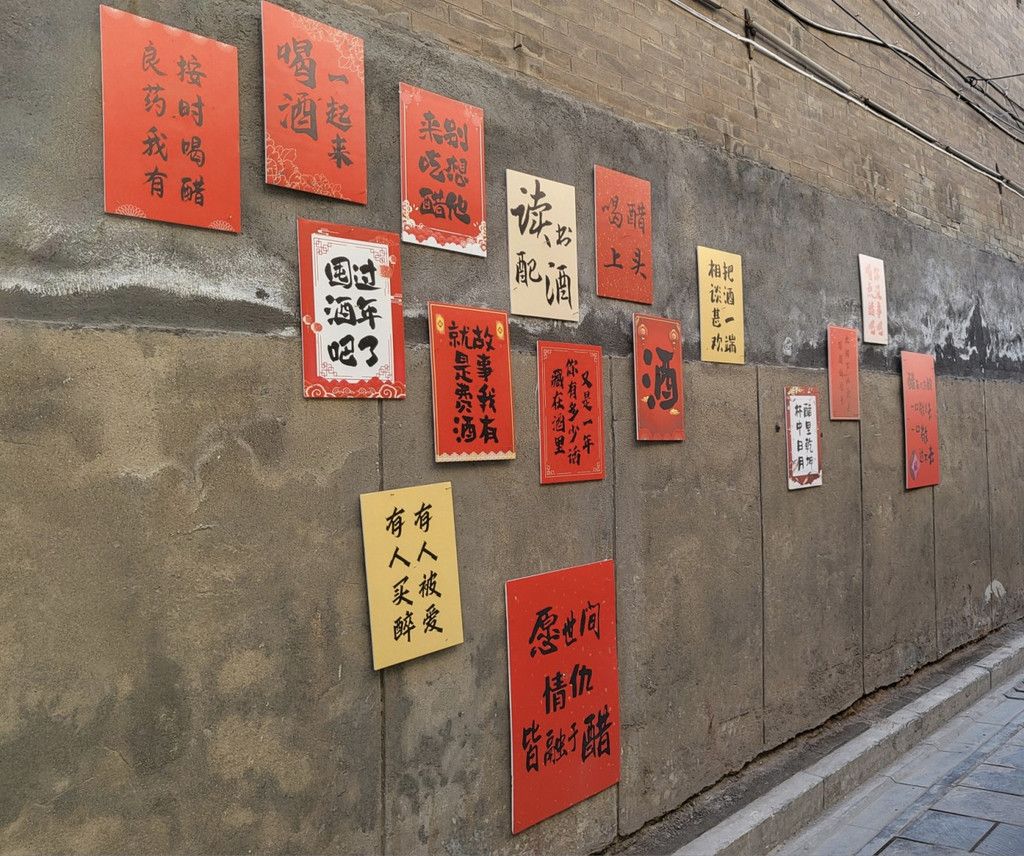 按时喝醋
良药我有
一起来
喝酒
别想他
来吃醋
读书
配酒
喝醋
上头
把酒一端
相谈甚欢
过年了
囤酒吧
故事我有
就是费酒
又是一年
你有多少话
藏在酒里
酒
醉里乾坤
杯中日月
有人被爱
有人买醉
愿世间
情仇
皆融于醋